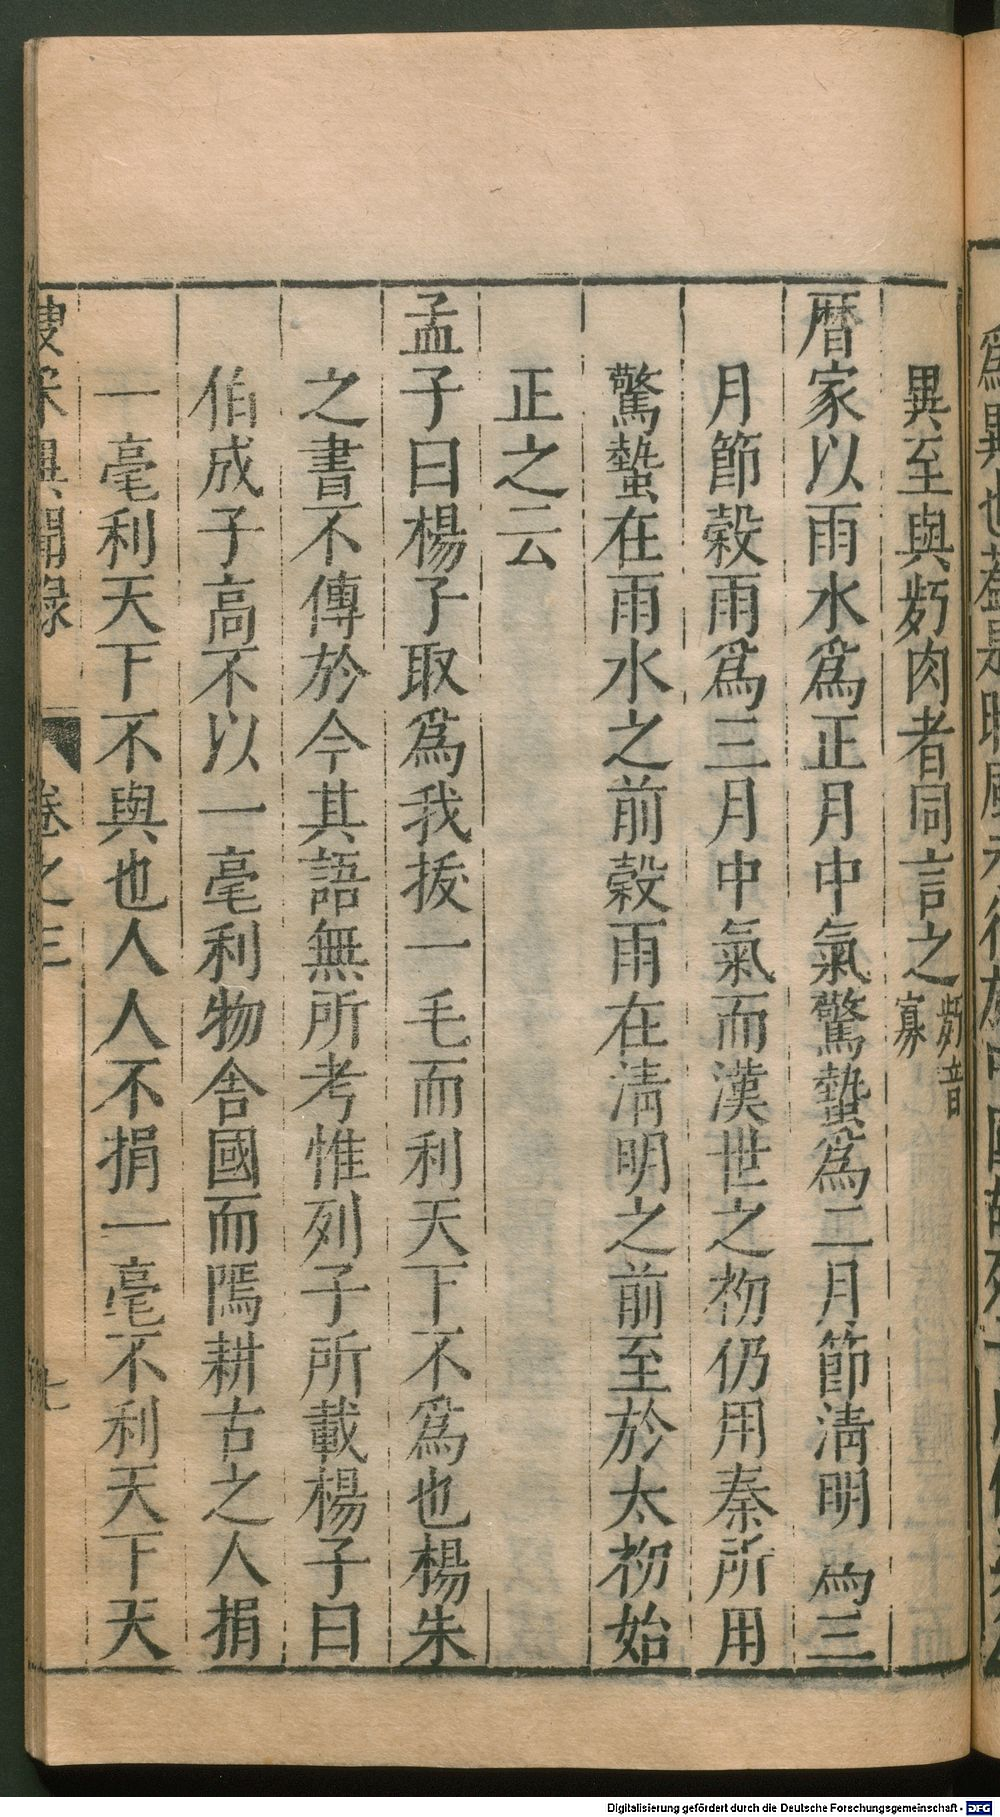 異至與㱔肉者同言之㱔音寡
暦家以雨水爲正月中氣驚蟄爲二月節淸明爲三
月節榖雨爲三月中氣而漢世之初仍用秦所用
驚蟄在雨水之前榖雨在淸明之前至於太初始
正之云
孟子曰楊子取爲我拔一毛而利天下不爲也楊朱
之書不傳於今其語無所考惟列子所載楊子曰
伯成子高不以一毫利物舍國而隱耕古之人損
一毫利天下不與也人人不損一毫不利天下天
叟采異聞錄 卷之三 七
Digitalisierung gefördert durch die Deutsche Forschungsgemeinschaft - DFG